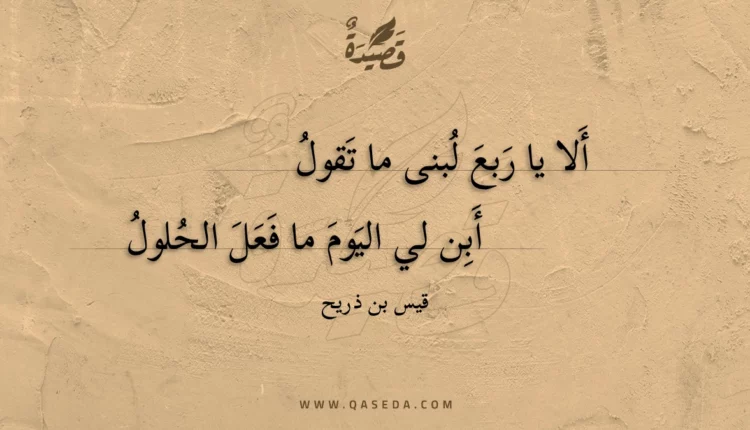 قَصِيدَةٌ
أَلا يا رَبعَ لُبنى ما تَقولُ
أَبِن لي اليَومَ ما فَعَلَ الحُلولُ
قيس بن ذريح
WWW.QASEDA.COM